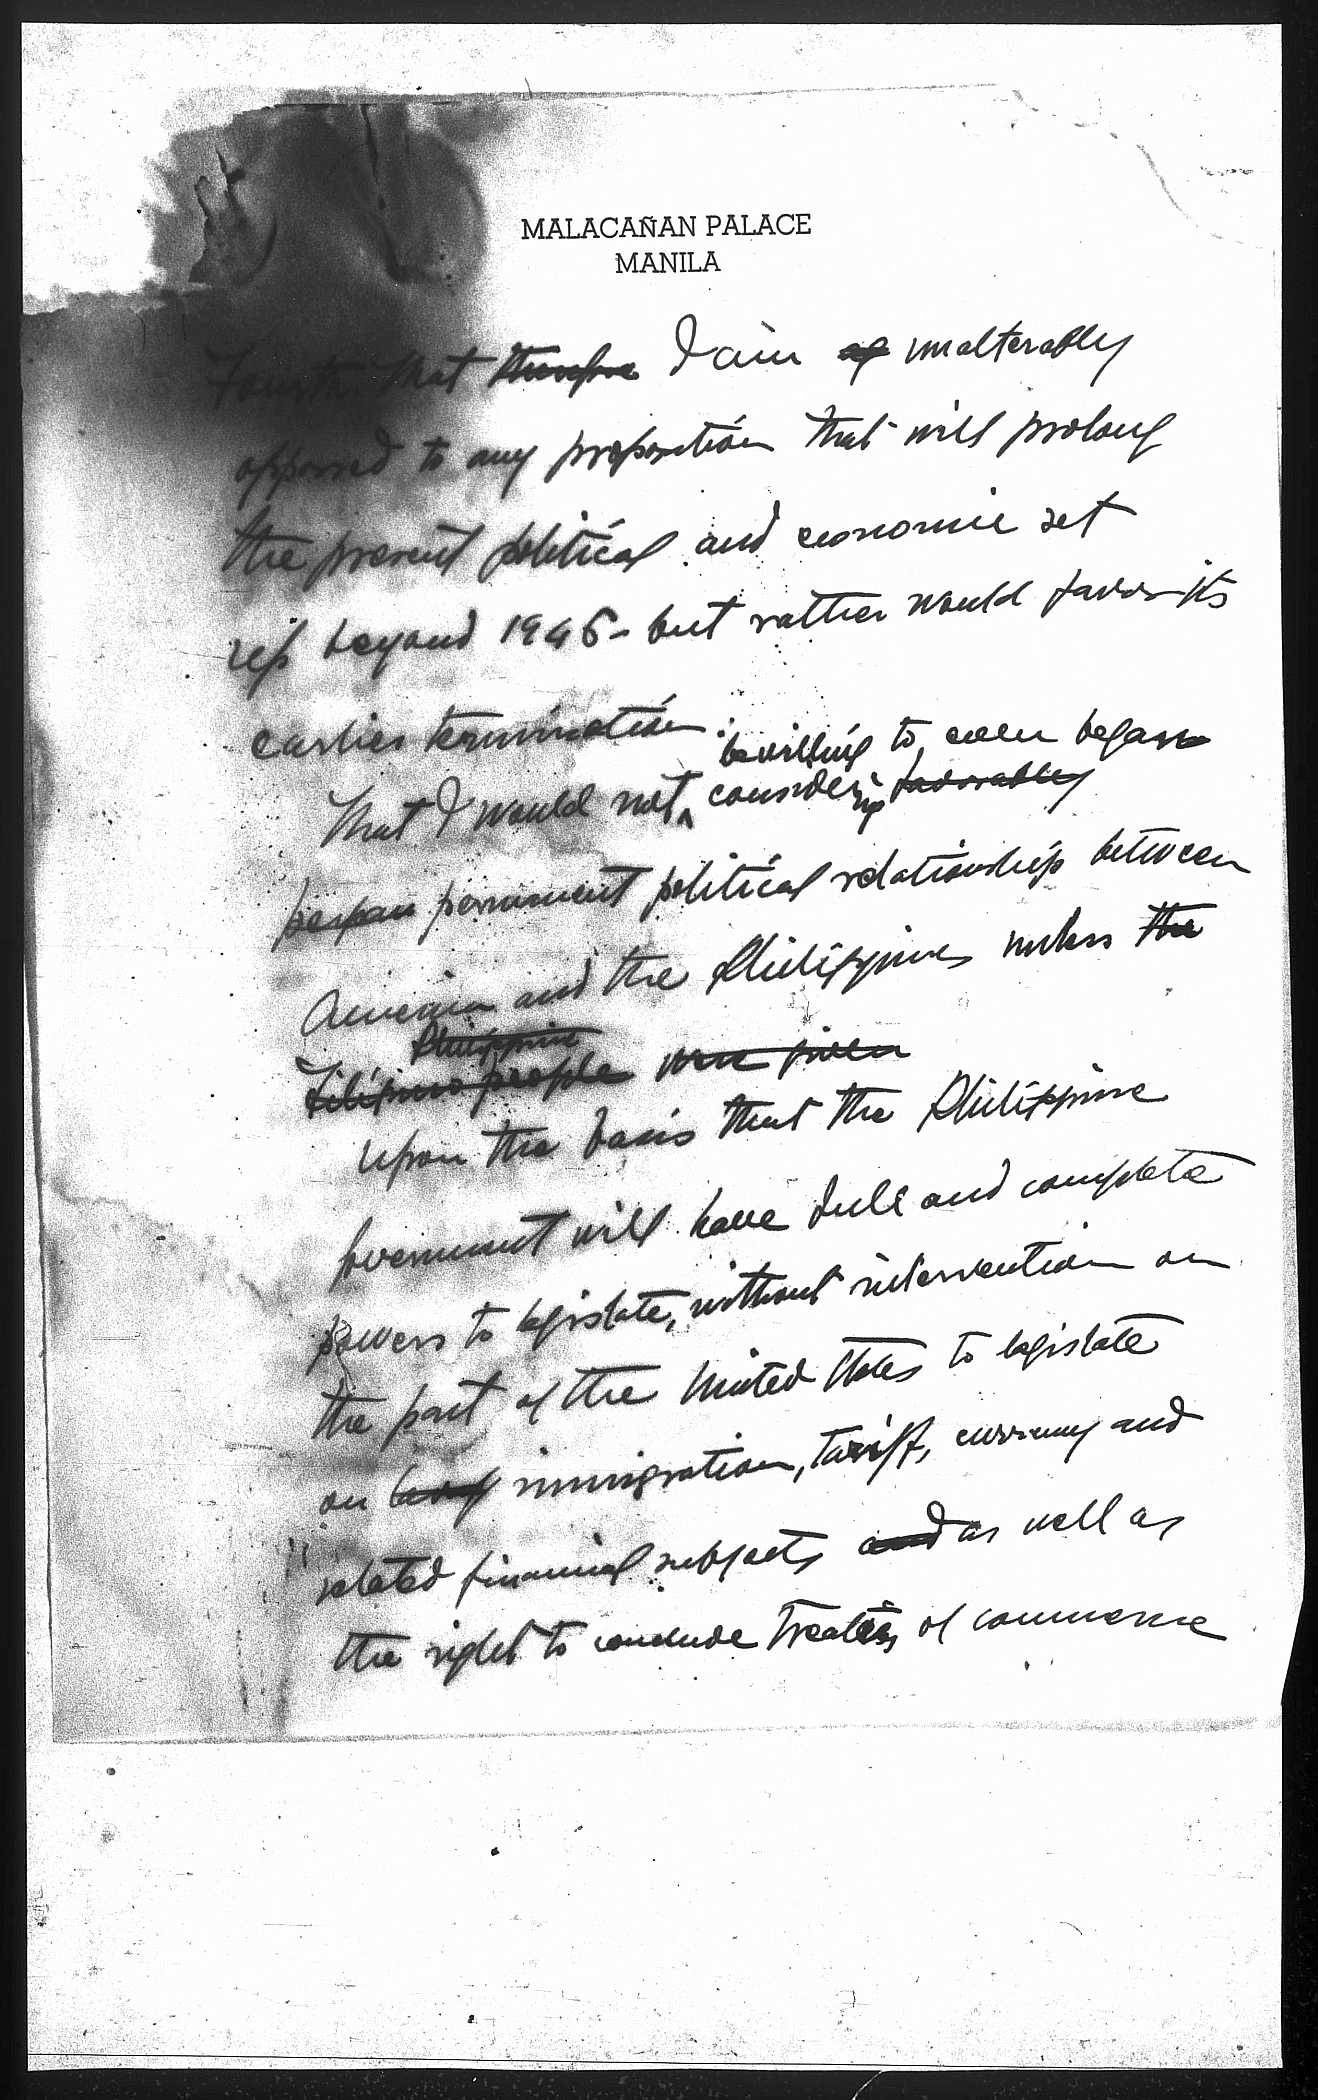 MALACAÑAN PALACE
MANILA
Fourth: that therefore I am unalterably
opposed to any proposition that will prolong
the present political and economic set
up beyond 1946 - but rather would favor its
earlier termination.
be willing to, even began
That I would not considering favorably
permanent political relationship between
America and the Philippines unless the
Philippine
Filipino people were given
upon the basis that the Philippine
Government will have full and complete
powers to legislate, without intervention on
the part of the United States to legislate
on immigration, tariff, currency and
related financial subjects and as well as
the right to conclude treaties of commerce